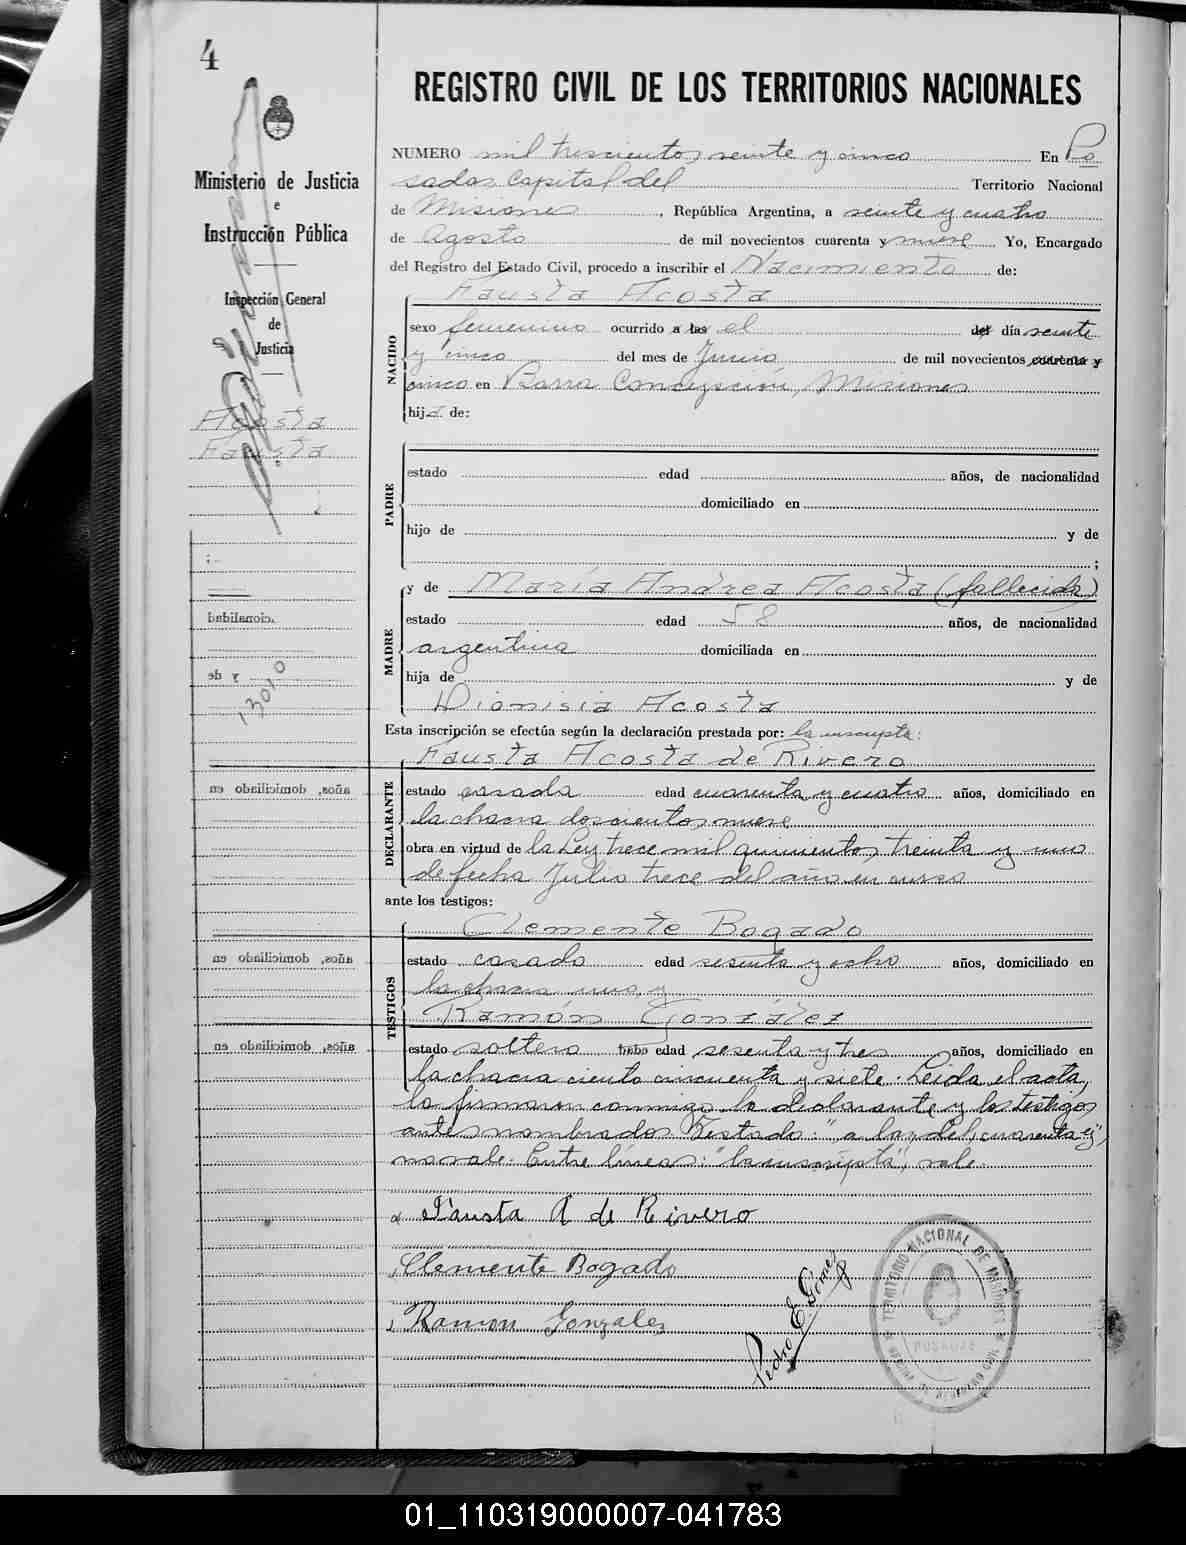 4
Ministerio de Justicia
e
Instrucción Pública
Inspección General
de
Justicia
Acosta
Fausta
13010
REGISTRO CIVIL DE LOS TERRITORIOS NACIONALES
NUMERO mil trescientos veinte y cinco En Po
sadas Capital del Territorio Nacional
de Misiones, República Argentina, a veinte y cuatro
de Agosto de mil novecientos cuarenta y nueve Yo, Encargado
del Registro del Estado Civil, procedo a inscribir el Nacimiento de:
Fausta Acosta
NACIDO
sexo femenino ocurrido a las el del día veinte
y cinco del mes de Junio de mil novecientos cuarenta y
cinco en Barra Concepción, Misiones
hija de:
PADRE
estado edad años, de nacionalidad
domiciliado en
hijo de y de
;
MADRE
y de María Andrea Acosta (fallecida)
estado edad 58 años, de nacionalidad
argentina domiciliada en
hija de y de
Dionisia Acosta
Esta inscripción se efectúa según la declaración prestada por: la inscripta:
Fausta Acosta de Rivero
DECLARANTE
estado casada edad cuarenta y cuatro años, domiciliado en
la chacra doscientos nueve
obra en virtud de la Ley trece mil quinientos treinta y uno
de fecha Julio trece del año en curso
ante los testigos:
TESTIGOS
Clemente Bogado
estado casado edad sesenta y ocho años, domiciliado en
la chacra uno, y
Ramón González
estado soltero edad sesenta y tres años, domiciliado en
la chacra ciento cincuenta y siete. Leida el acta,
la firmaron conmigo la declarante y los testigos
antes nombrados. Testado: "a las, del, cuarenta y",
no vale. Entre líneas: "la inscripta", vale.
Fausta A de Rivero
Clemente Bogado
Ramon Gonzales
Pedro E. Gomez
TERRITORIO NACIONAL DE MISIONES
POSADAS
01_110319000007-041783